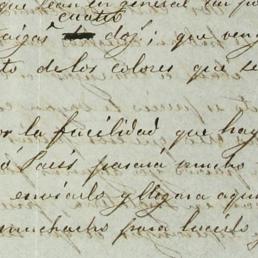 que sean en general
cuatro
caigas dos; que veng
to de los colores que se
or la facilidad que hay
á París pasará mucho
enviarlo y llegara aqui
muchacho para lucirlo y